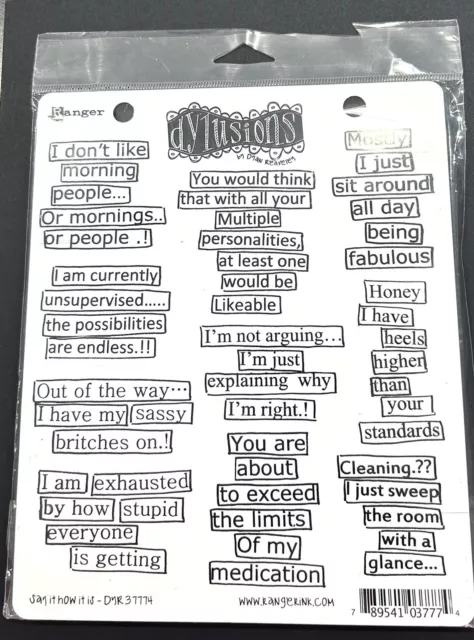 Ranger
dylusions
by Dyan Reaveley
I don't like
morning
people...
Or mornings..
or people .!
I am currently
unsupervised.....
the possibilities
are endless.!!
Out of the way...
I have my sassy
britches on.!
I am exhausted
by how stupid
everyone
is getting
You would think
that with all your
Multiple
personalities,
at least one
would be
Likeable
I'm not arguing...
I'm just
explaining why
I'm right.!
You are
about
to exceed
the limits
Of my
medication
Mostly
I just
sit around
all day
being
fabulous
Honey
I have
heels
higher
than
your
standards
Cleaning.??
I just sweep
the room
with a
glance...
Say it how it is - DYR37774
www.rangerink.com
7 89541 03777 4